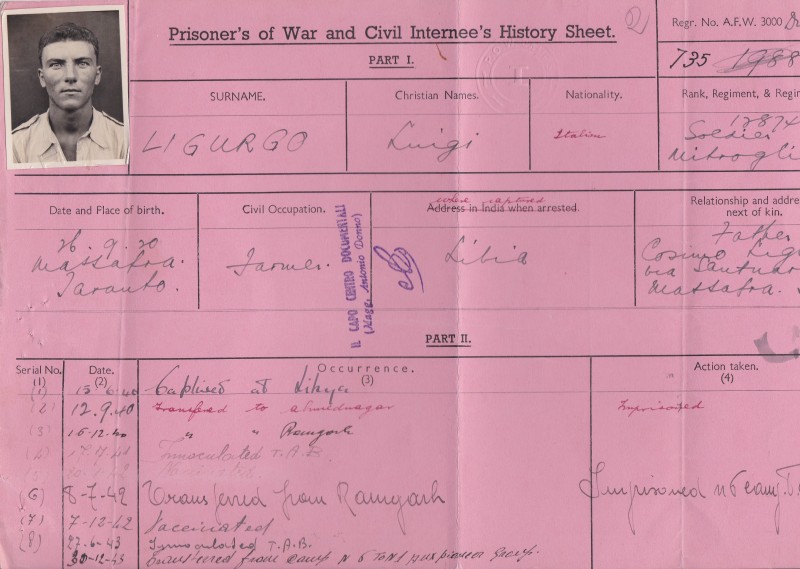 Prisoner's of War and Civil Internee's History Sheet.
Regr. No. A.F.W. 3000
PART I.
735 1988
SURNAME.
Christian Names.
Nationality.
Rank, Regiment, & Regi
LIGURGO
Luigi
Italian
Soldier
Mitragli
Date and Place of birth.
Civil Occupation.
where captured
Address in India when arrested.
Relationship and addre
next of kin.
26.9.20
Massafra.
Taranto.
Farmer.
IL CAPO CENTRO DOCUMENTALI
(Magg. Antonio Donno)
Libia
Father
Cosimo Lig
via Santuar
Massafra.
PART II.
Serial No.
(1)
Date.
(2)
Occurrence.
(3)
Action taken.
(4)
(1) 15.6.40 Captured at Libya
(2) 12.9.40 Transfered to Ahmednagar Imprisoned
(3) 15-12-40 " " Ramgarh
(4) Innoculated T.A.B.
Vaccinated
(6) 8-7-42 Transferred from Ramgarh Imprisoned
(7) 7-12-42 Vaccinated
(8) 27-6-43 Innoculated T.A.B.
30-12-43 Transferred from Camp N 5 to N 1 pioneer Group.